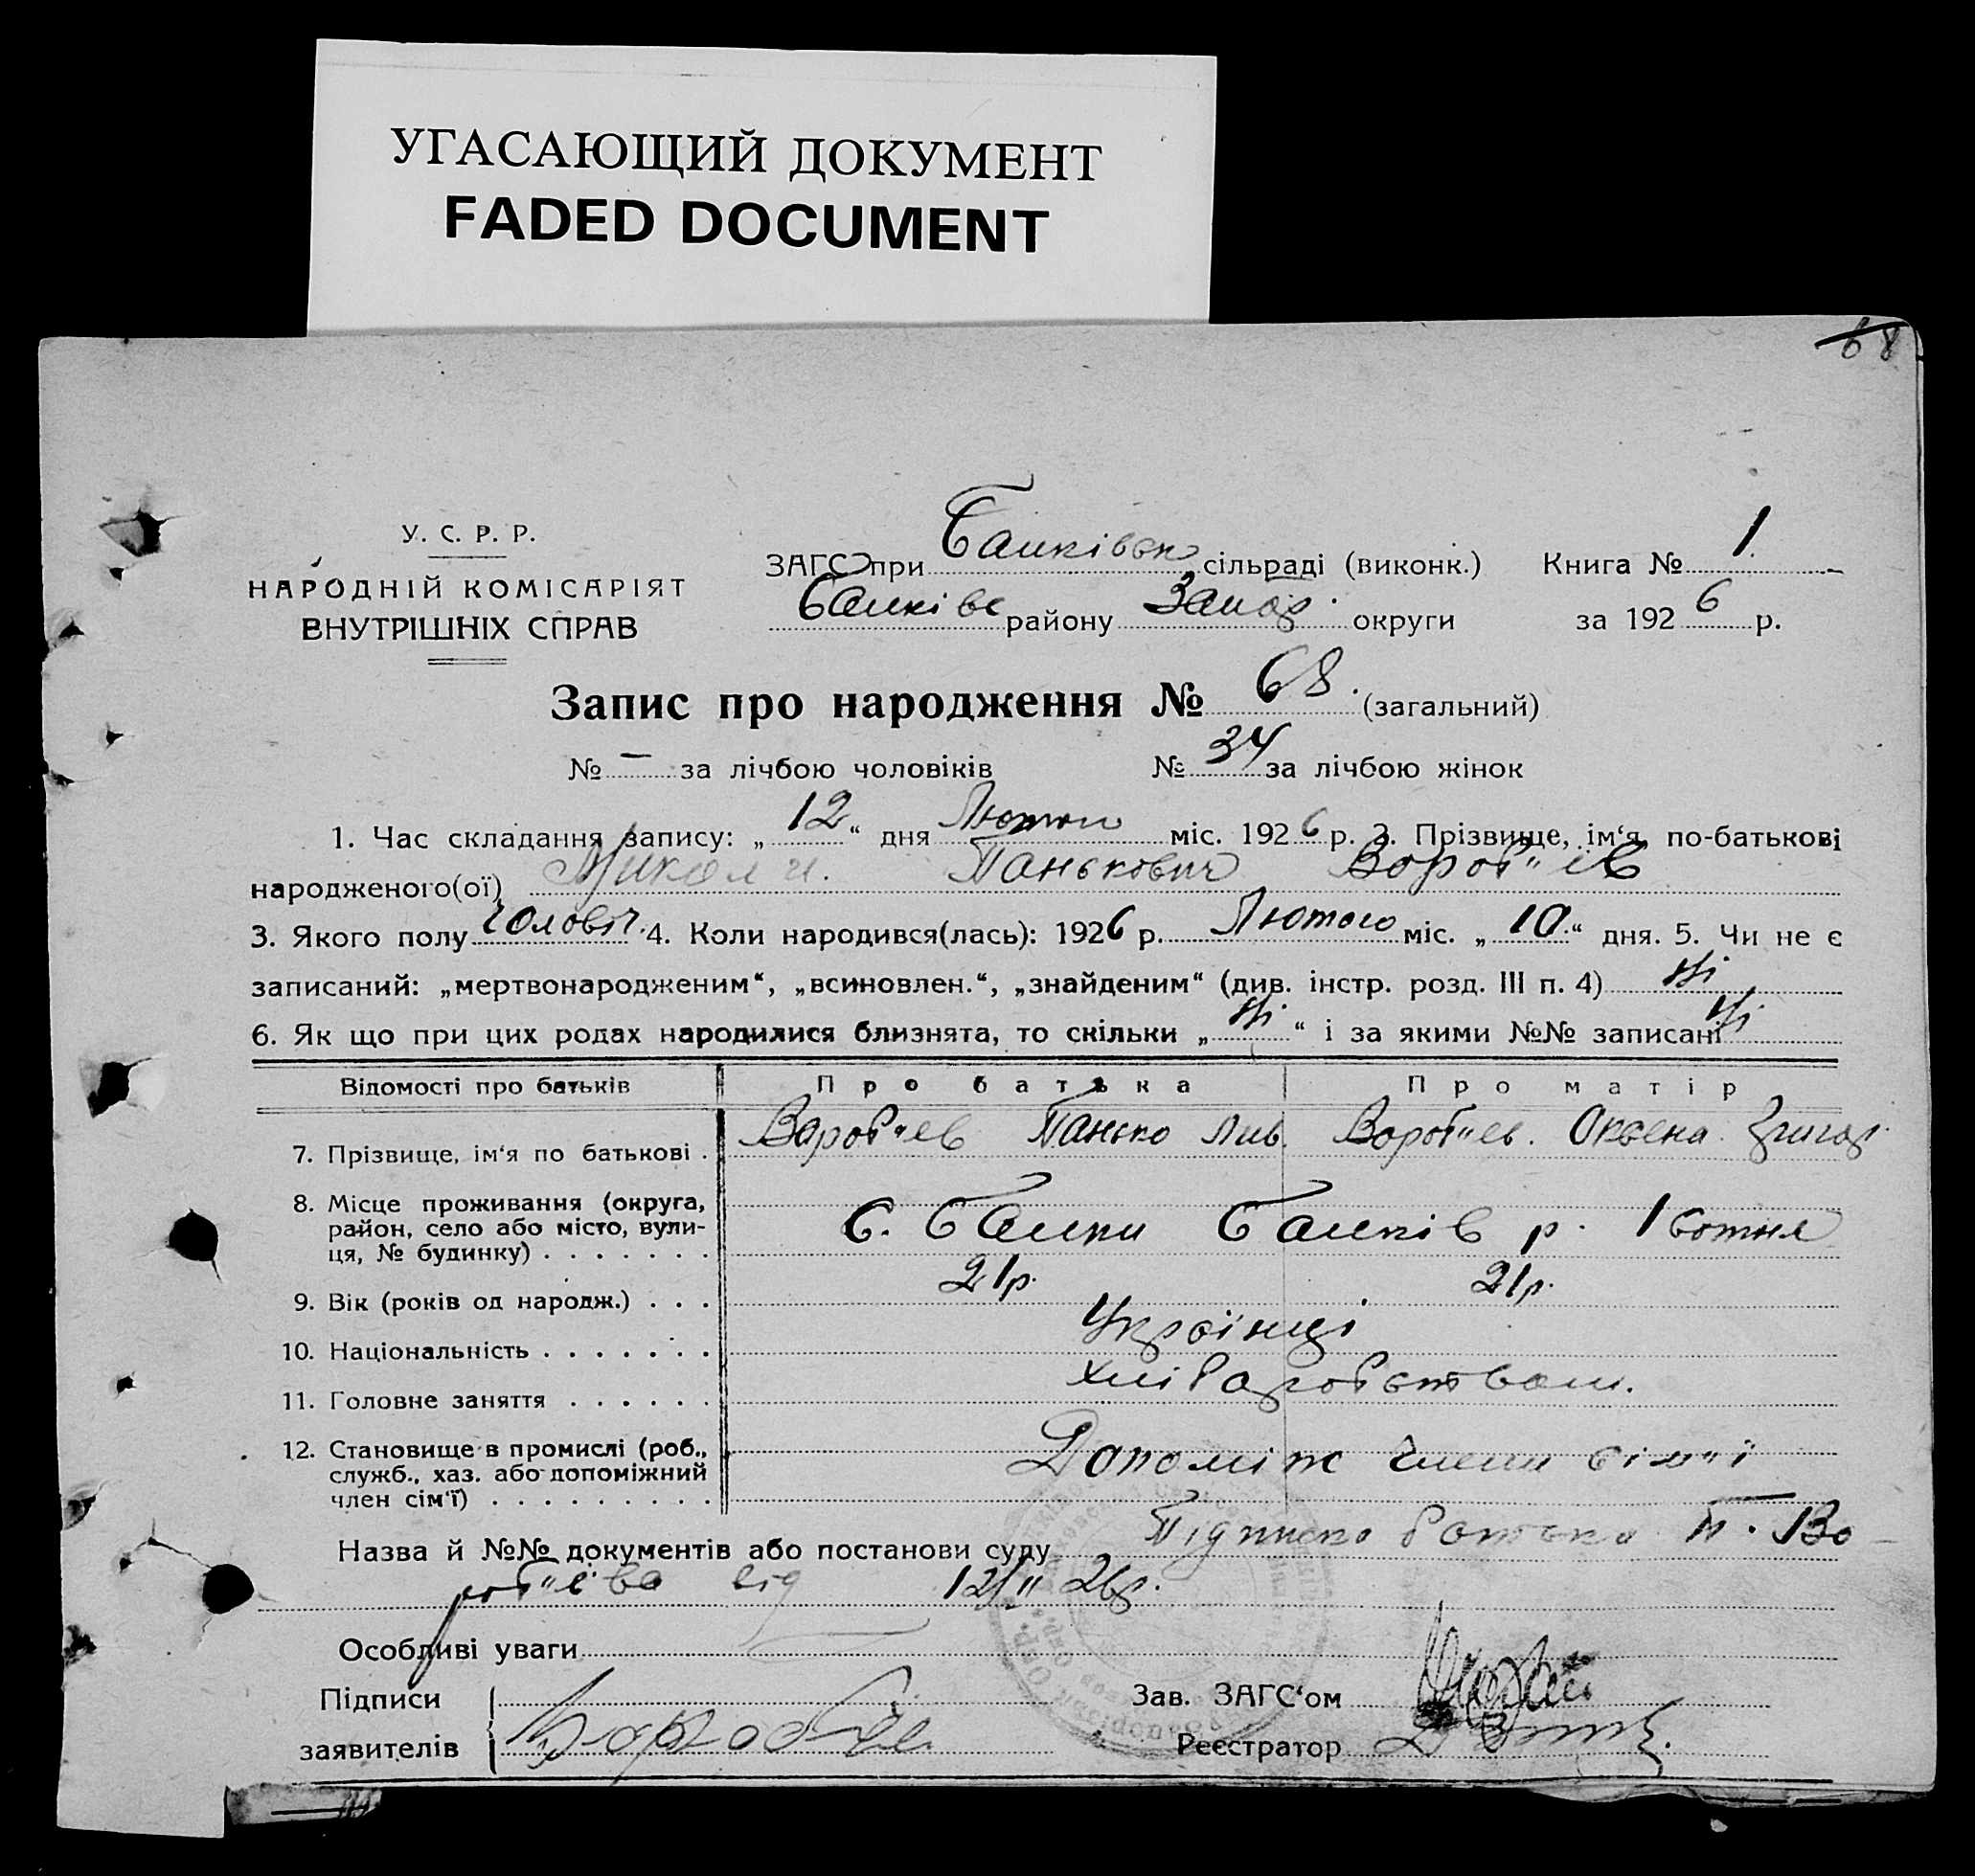 УГАСАЮЩИЙ ДОКУМЕНТ
FADED DOCUMENT
68
У. С. Р. Р.
НАРОДНІЙ КОМІСАРІЯТ
ВНУТРІШНІХ СПРАВ
ЗАГС при Балківськ сільраді (виконк.) Книга № 1.
Балківс району Запор. округи за 1926 р.
Запис про народження № 68. (загальний)
№ — за лічбою чоловіків № 34 за лічбою жінок
1. Час складання запису: „ 12 “ дня Лютого міс. 1926 р. 2. Прізвище, ім‘я, по-батькові
народженого(ої) Панькович Вороб"їв
3. Якого полу Чоловіч. 4. Коли народився(лась): 1926 р. Лютого міс. „ 10. “ дня. 5. Чи не є
записаний: „мертвонародженим“, „всиновлен.“, „знайденим“ (див. інстр. розд. III п. 4) Ні
6. Як що при цих родах народилися близнята, то скільки „ Ні “ і за якими №№ записані Ні
Відомості про батьків Про батька Про матір
7. Прізвище, ім‘я по батькові . Вороб"ев Панько Вороб"ев. Оксена Григор.
8. Місце проживання (округа, район, село або місто, вулиця, № будинку) . . . . . . . С. Балки Балків р. 1 сотня
9. Вік (років од народж.) . . . 21р. 21р.
10. Національність . . . . . . . Українці
11. Головне заняття . . . . . . Хліборобством.
12. Становище в промислі (роб., служб., хаз. або допоміжний член сім‘ї) . . . . . . . . . Допоміж члени сім"ї
Назва й №№ документів або постанови суду Підписка батька П. Во-
роб"ёва від 12/II 26р.
Особливі уваги
Підписи
Зав. ЗАГС‘ом
заявителів
Реєстратор